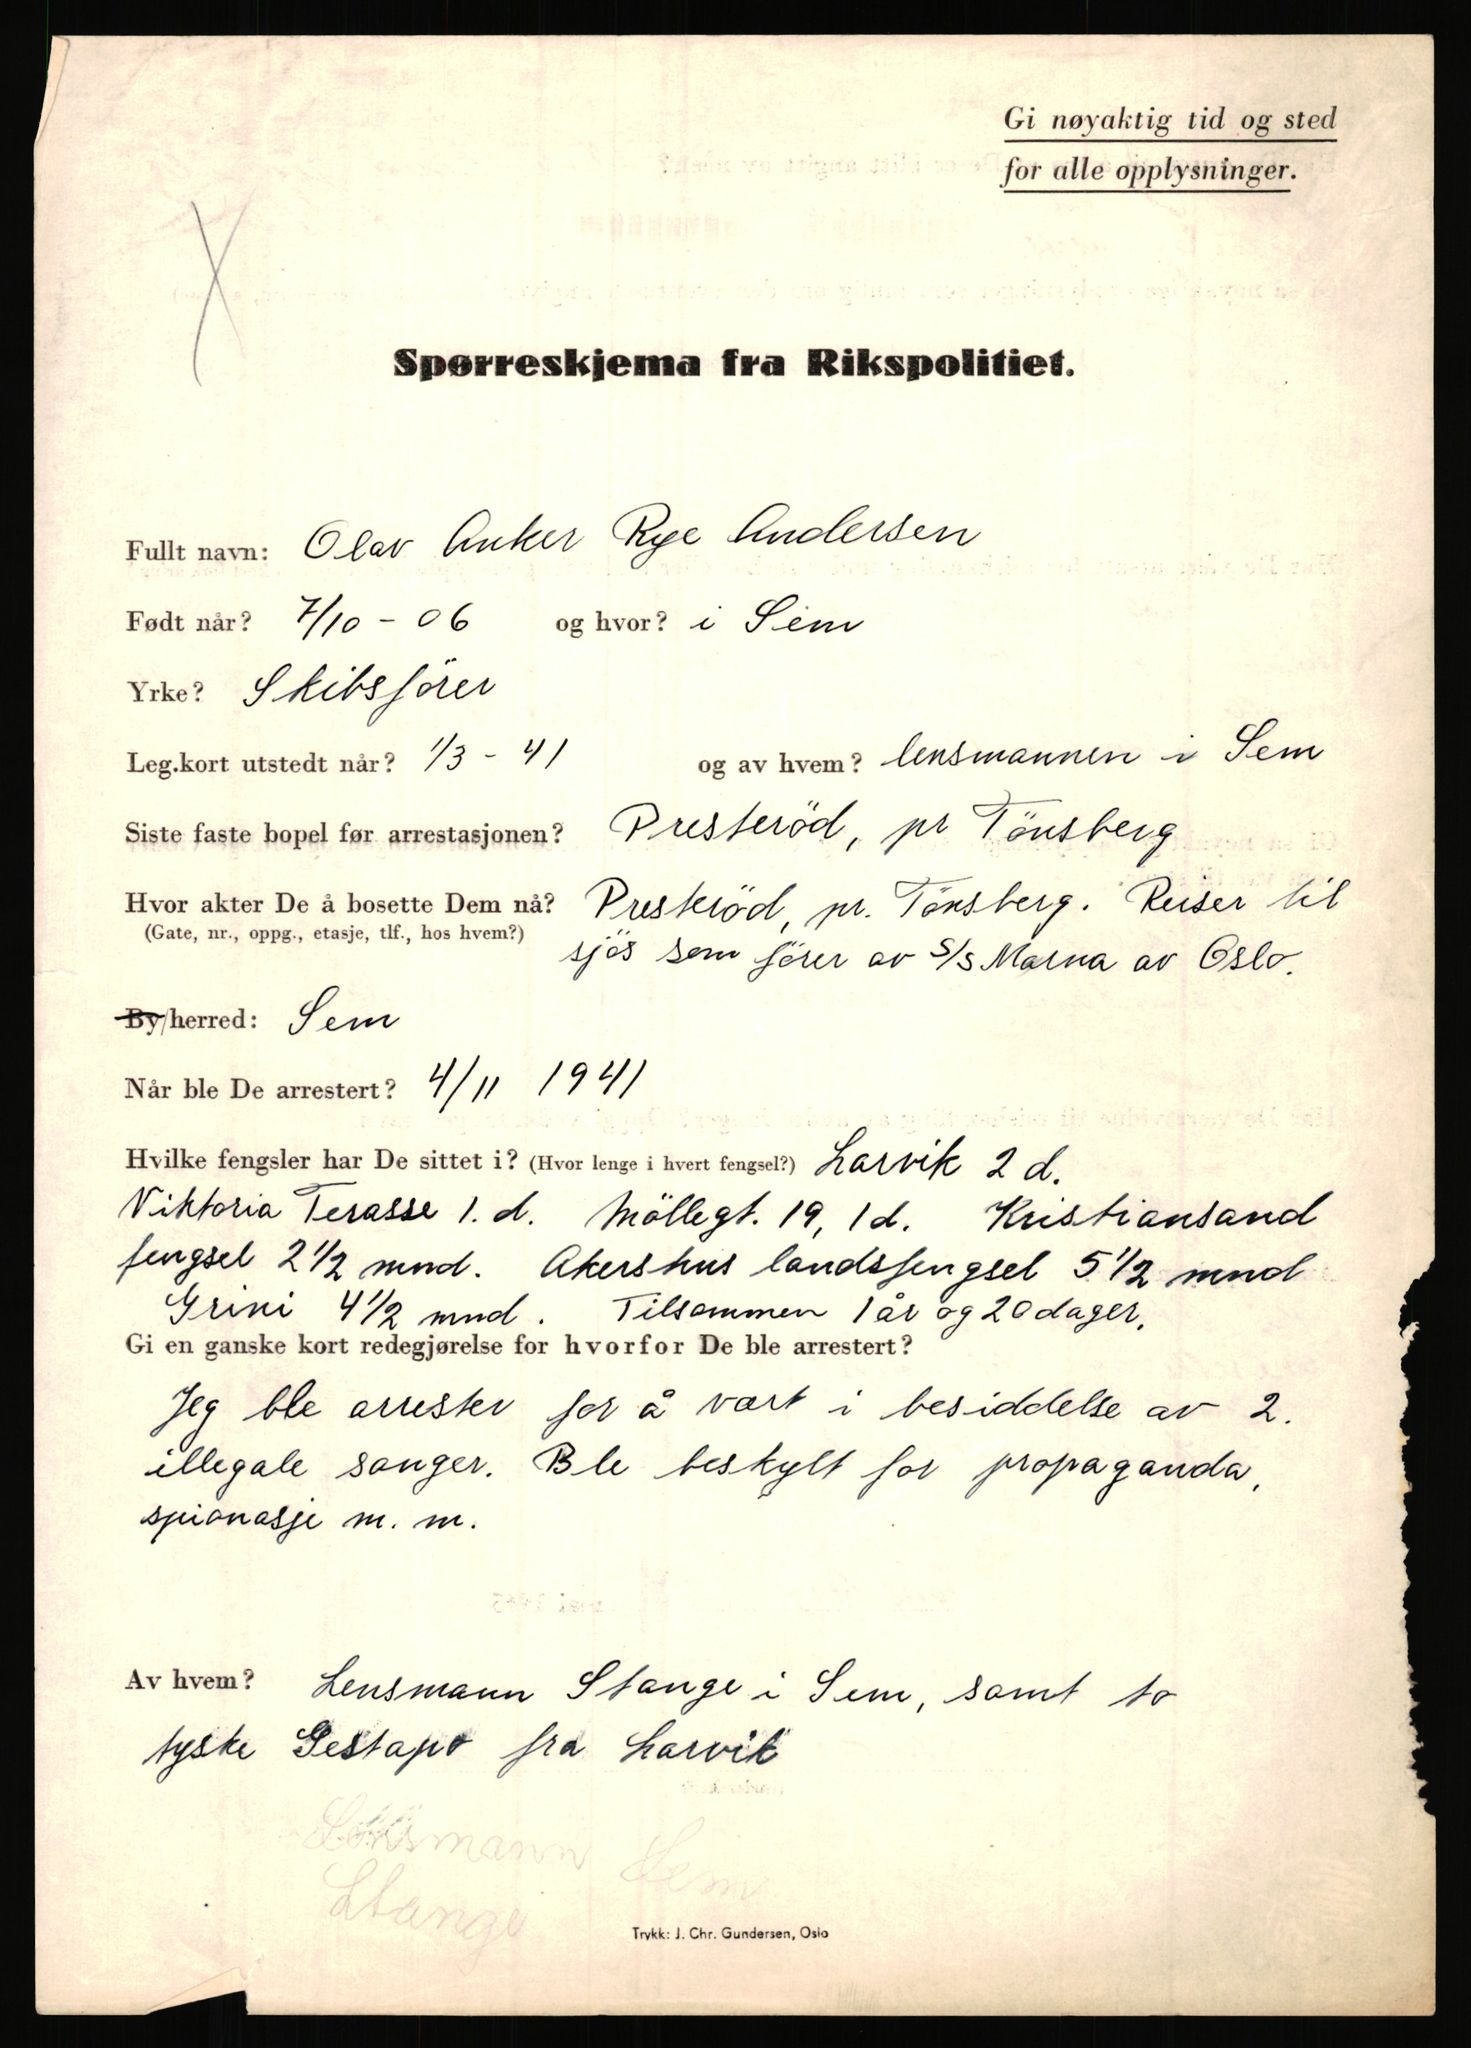 Gi nøyaktig tid og sted
for alle opplysninger.
Spørreskjema fra Rikspolitiet.
Fullt navn: Olav Anker Rye Andersen
Født når? 7/10 - 06 og hvor? i Sem
Yrke? Skibsförer
Leg.kort utstedt når? 1/3 - 41 og av hvem? lensmannen i Sem
Siste faste bopel før arrestasjonen? Presteröd, pr Tönsberg
Hvor akter De å bosette Dem nå? Presteröd, pr. Tönsberg. Reiser til
(Gate, nr., oppg., etasje, tlf., hos hvem?) sjös som förer av S/S Marna av Oslo.
By/herred: Sem
Når ble De arrestert? 4/11 1941
Hvilke fengsler har De sittet i? (Hvor lenge i hvert fengsel?) Larvik 2 d.
Viktoria Terasse 1. d. Möllegt. 19, 1 d. Kristiansand
fengsel 2 1/2 mnd. Akershus landsfengsel 5 1/2 mnd
Grini 4 1/2 mnd. Tilsammen 1 år og 20 dager.
Gi en ganske kort redegjørelse for hvorfor De ble arrestert?
Jeg ble arrester for å vært i besiddelse av 2.
illegale sanger. Ble beskylt for propaganda,
spionasje m. m.
Av hvem? Lensmann Stange i Sem, samt to
tyske Gestapo fra Larvik
Lensmann Sem
Stange
Trykk: J. Chr. Gundersen, Oslo